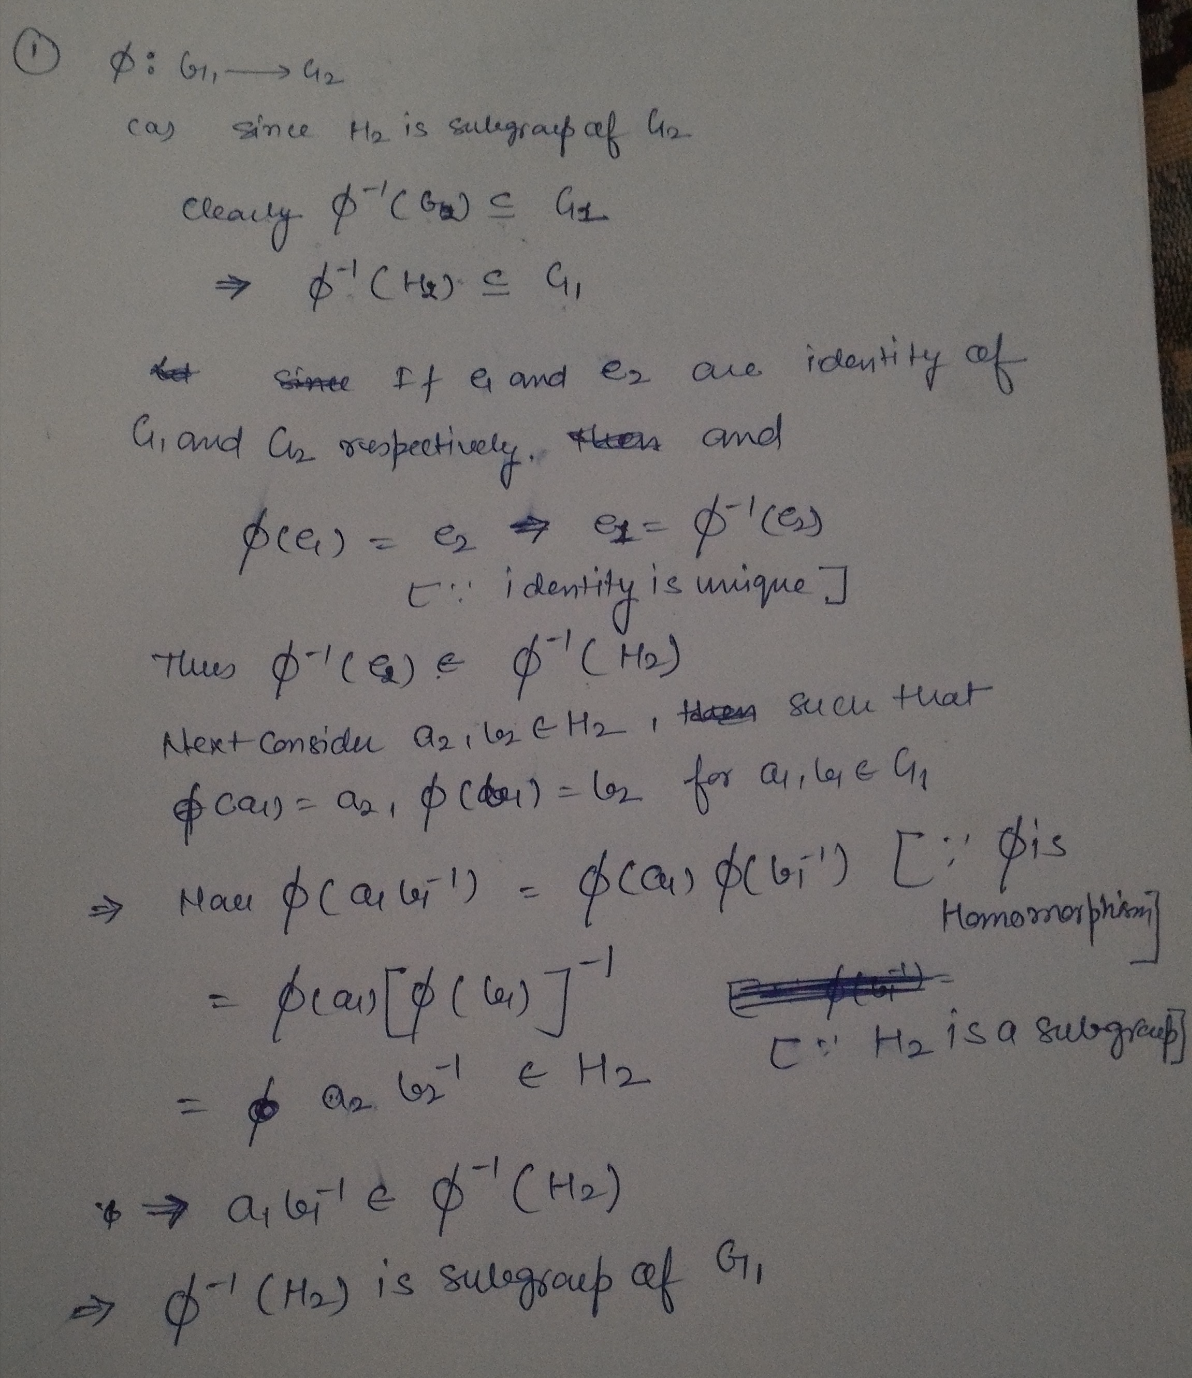 ① ϕ: G₁ → G₂
(a) since H₂ is subgroup of G₂
clearly ϕ⁻¹(G₂) ⊆ G₁
⇒ ϕ⁻¹(H₂) ⊆ G₁
If e₁ and e₂ are identity of
G₁ and G₂ respectively. and
ϕ(e₁) = e₂ ⇒ e₁ = ϕ⁻¹(e₂)
[∵ identity is unique]
Thus ϕ⁻¹(e₂) ∈ ϕ⁻¹(H₂)
Next consider a₂, b₂ ∈ H₂, such that
ϕ(a₁) = a₂, ϕ(b₁) = b₂ for a₁, b₁ ∈ G₁
⇒ ϕ(a₁b₁⁻¹) = ϕ(a₁) ϕ(b₁⁻¹) [∵ ϕ is
Homomorphism]
= ϕ(a₁)[ϕ(b₁)]⁻¹
[∵ H₂ is a subgroup]
= a₂ b₂⁻¹ ∈ H₂
⇒ a₁b₁⁻¹ ∈ ϕ⁻¹(H₂)
⇒ ϕ⁻¹(H₂) is subgroup of G₁